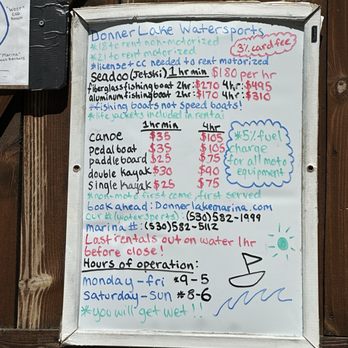 Donner Lake Watersports
*18 to rent non-motorized
*21 to rent motorized
3% card fee!
*license + cc needed to rent motorized
Seadoo (Jetski) 1 hr min $180 per hr
fiberglass fishing boat 2hr: $270 4hr: $495
aluminum fishing boat 2hr: $170 4hr: $310
*fishing boats not speed boats!
*life jackets included in rental
1 hr min 4hr
canoe $35 $105
pedal boat $35 $105
paddleboard $25 $75
double kayak $30 $90
single kayak $25 $75
*5% fuel
charge
for all moto
equipment
*non-moto first come, first served
book ahead: Donnerlakemarina.com
our # (watersports): (530) 582-1999
marina #: (530) 582-5112
Last rentals out on water 1hr
before close!
Hours of operation:
monday-fri *9-5
Saturday-Sun *8-6
*you will get wet!!